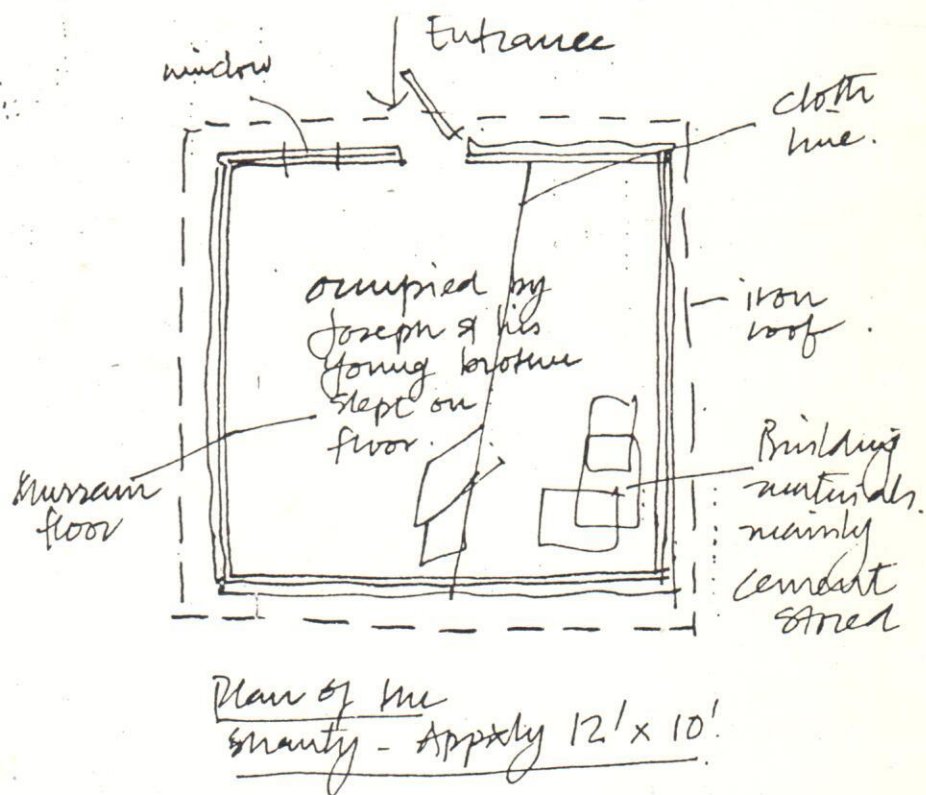 Entrance
window
cloth
line.
occupied by
Joseph & his
young brother
slept on
floor.
iron
roof.
Murram
floor
Building
materials.
mainly
cement
stored
Plan of the
shanty - Appxly 12' x 10'.